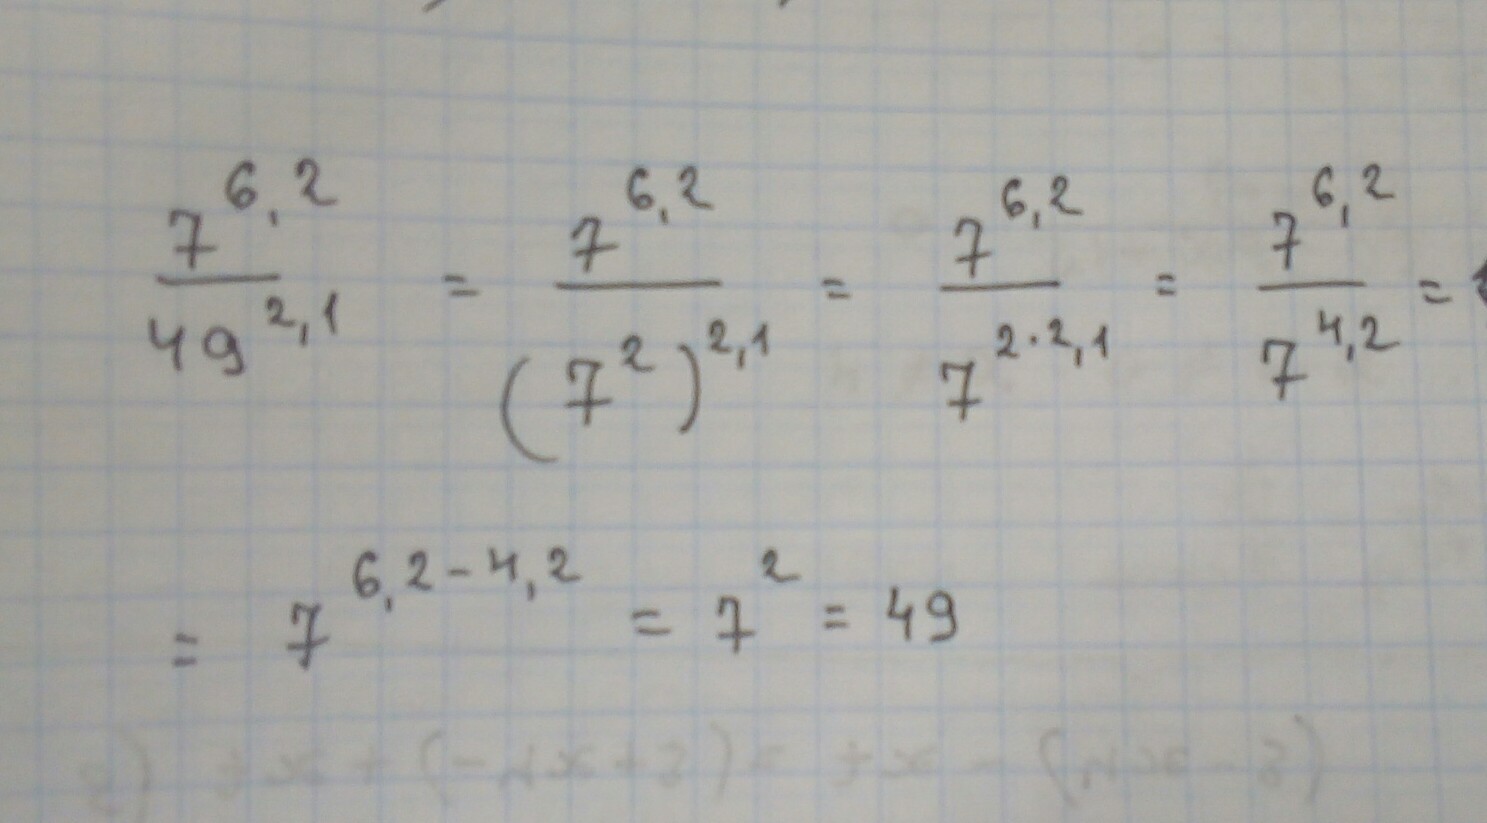 7^{6,2} / 49^{2,1} = 7^{6,2} / (7^2)^{2,1} = 7^{6,2} / 7^{2·2,1} = 7^{6,2} / 7^{4,2} =
= 7^{6,2-4,2} = 7^2 = 49